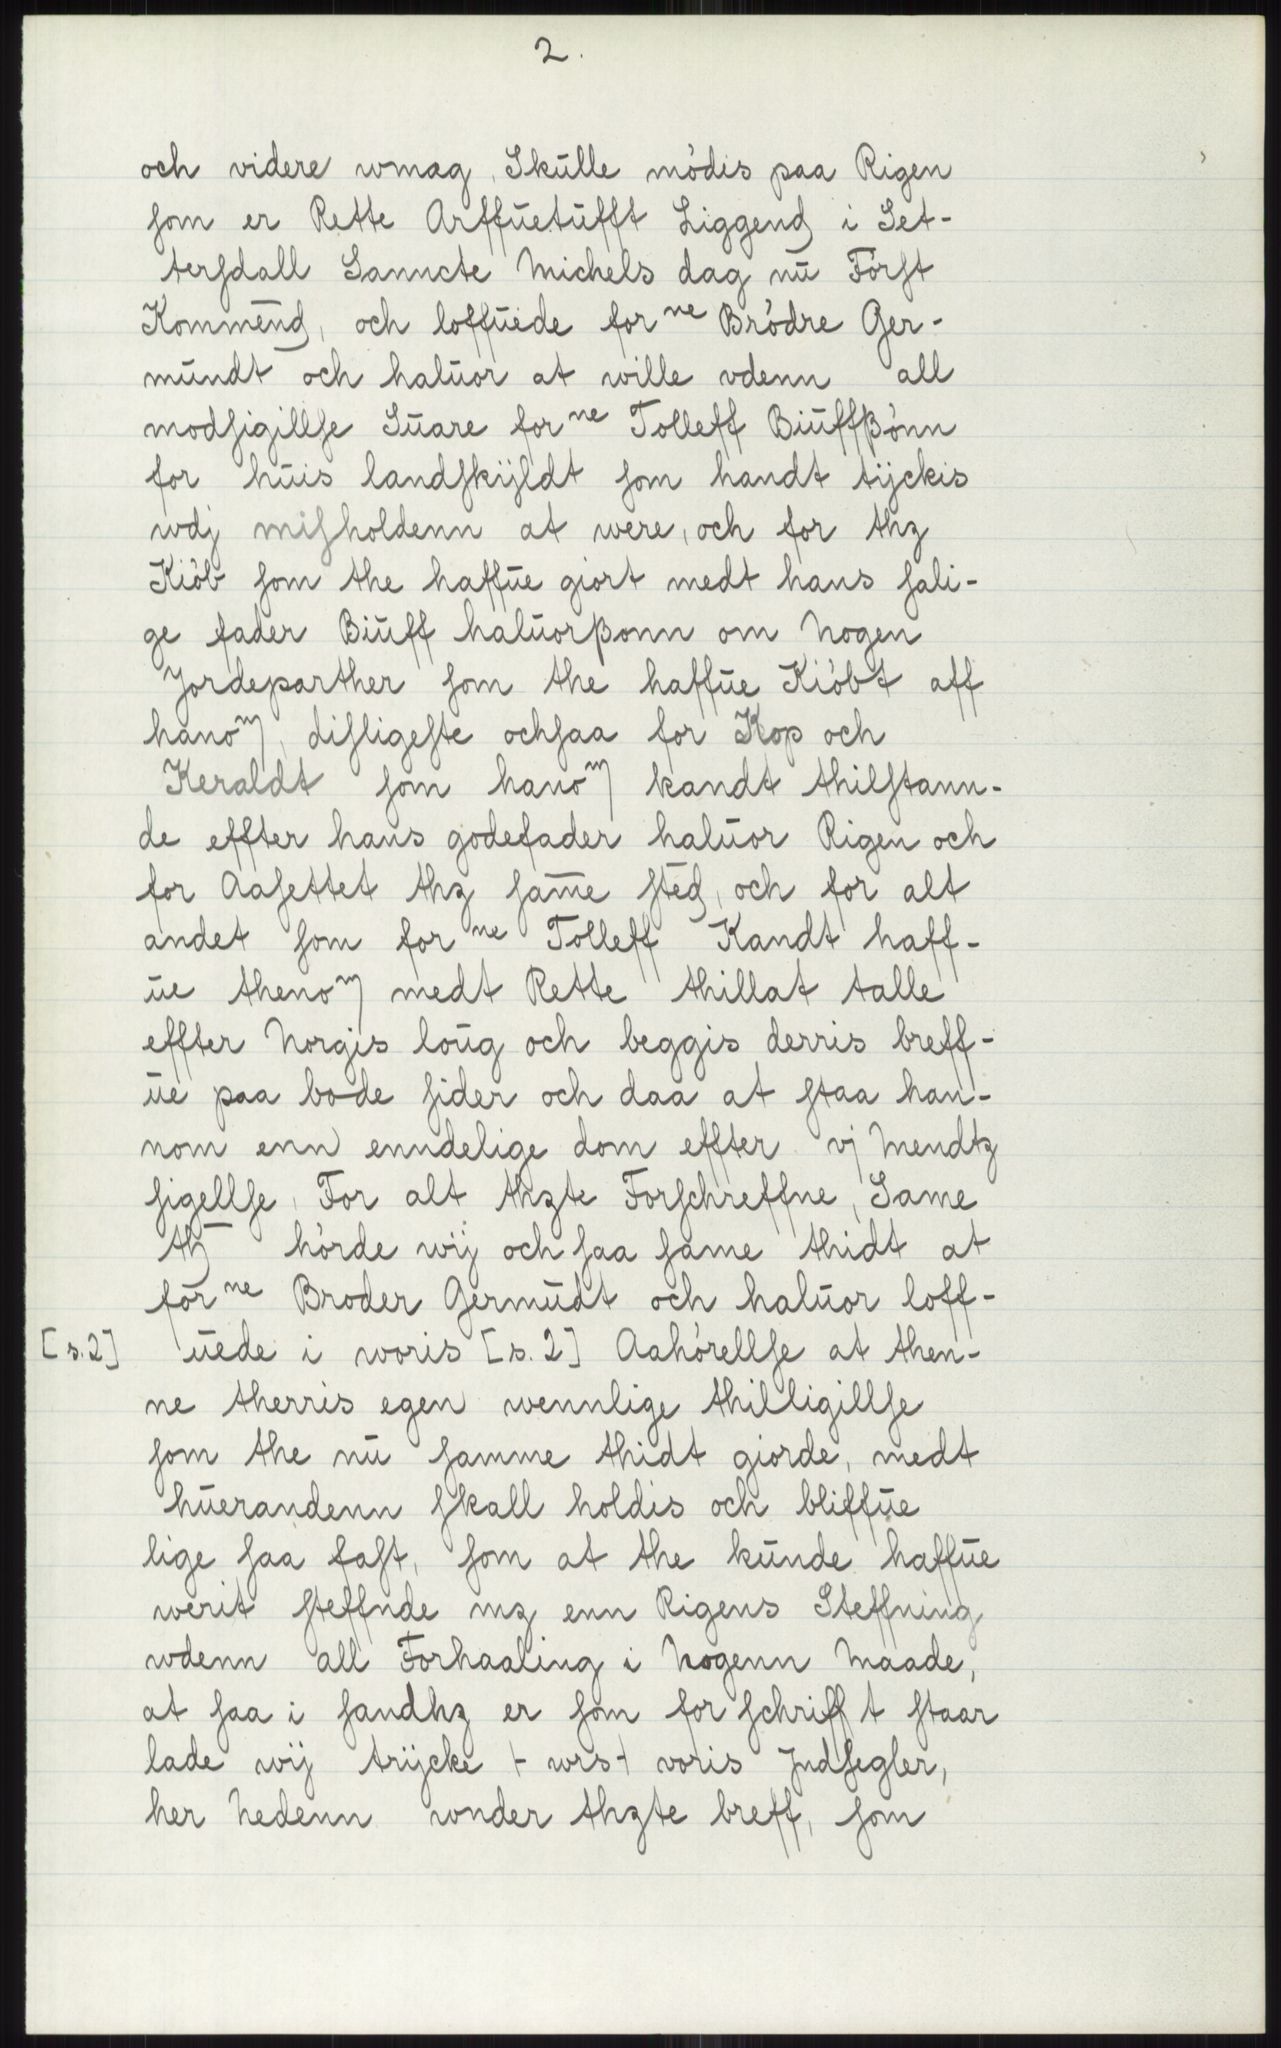 2.
och videre wmag, Skulle módis paa Rigen
som er Rette Arffuetufft Liggend i Set-
tersdall Sanncte Michels dag nu Fórst
Kommēnd, och loffuede for ne Bródre Ger-
mundt och haluor at wille vdenn all
modsigillse Suare for ne Tolleff Biuffßónn
for huis landskijldt som handt tijckis
wdj misholdenn at were, och for thz
Kiób som the haffue giort medt hans sali-
ge fader Biuff haluorßonn om Nogen
Jordeparther som the haffue Kióbt aff
hanom, disligeste ochsaa for Kop och
Keraldt som hanom kandt thilstann-
de effter hans godefader haluor Rigen och
for Aasettet thz sam̄e stēd, och for alt
andet som for ne Tolleff Kandt haff-
ue thenom medt Rette thillat talle
effter Norgis loug och beggis derris breff-
ue paa bode sider och daa at staa han-
nom enn enndelige dom effter vj Mendtz
sigellse, For alt thzte Forschreffne, Same
th̄ hórde wij och saa same thidt at
for ne Broder Germudt och haluor loff-
[s. 2] uede i woris [s. 2] Aahórellse at then-
ne therris egen wennlige thilligillse
som the nu samme thidt giorde, medt
huerandenn skall holdis och bliffue
lige saa fast, som at the kunde haffue
werit steffnde mz enn Rigens Steffning
wdenn all Forhaaling i Nogenn Maade,
at saa i sandhz er som for schrifft staar
lade wij trijcke ⊢ wrs ⊣ voris Jndsegler,
her Nedenn wnder thzte breff, som